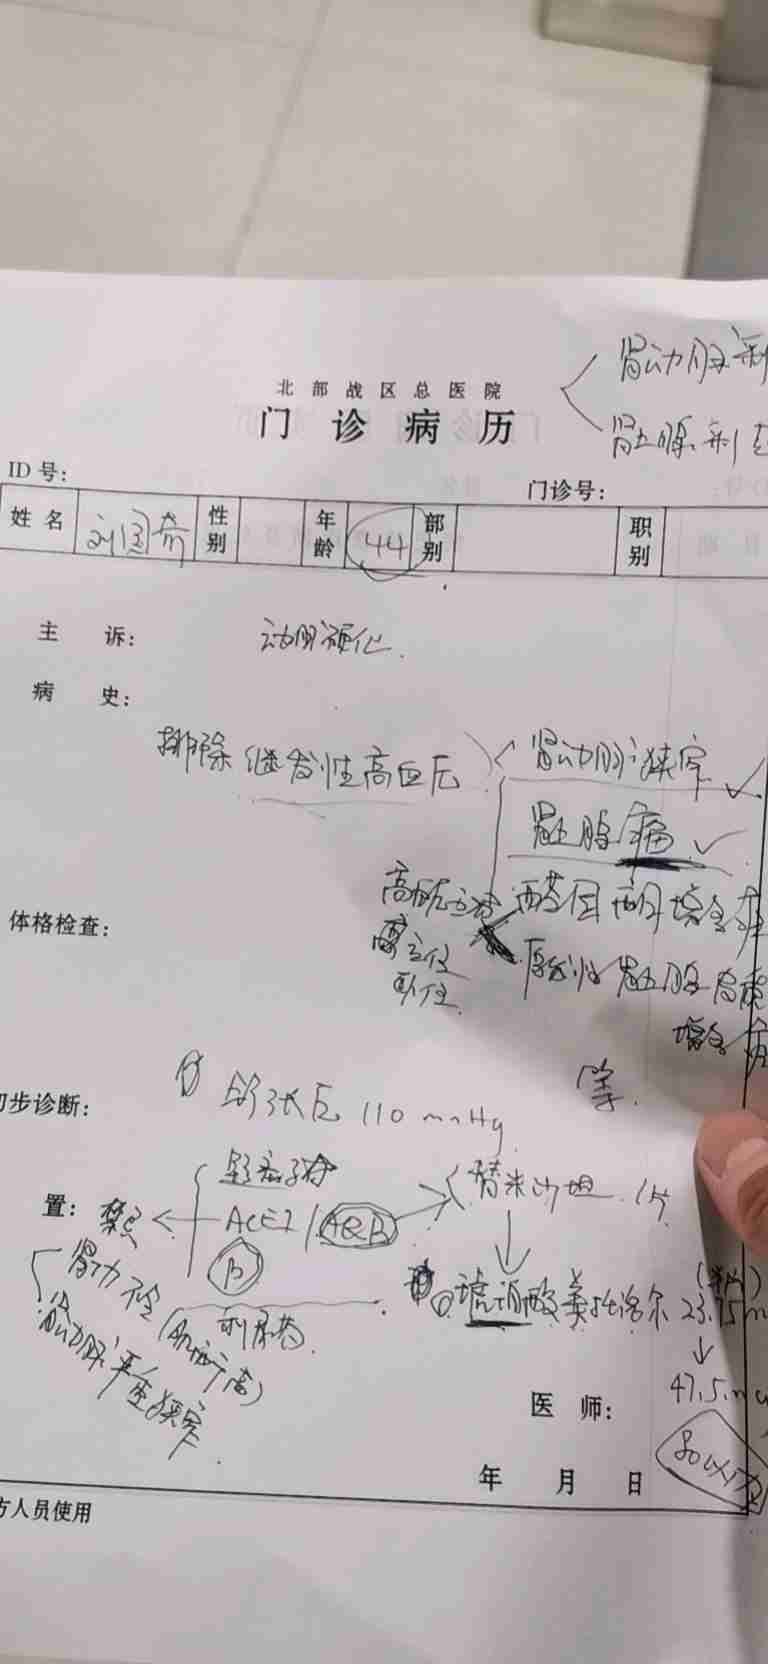 肾动脉彩
北部战区总医院
门诊病历
肾上腺彩超
ID 号:
门诊号:
姓名 性别 年龄 44 部别 职别
主诉: 动脉硬化.
病史:
排除继发性高血压 肾动脉狭窄 ✓
肾上腺瘤 ✓
高血压立位 醛固酮增多症
体格检查:
卧位 原发性肾上腺皮质
增多
等.
初步诊断: ① 舒张压 110 mmHg
置: 禁忌 ACEI / ARB 替米沙坦 1片
B
肾功不全 (肌酐高) 利尿药. 琥珀酸美托洛尔 23.75m
(半片)
肾动脉严重狭窄
47.5m
医师:
年 月 日
方人员使用